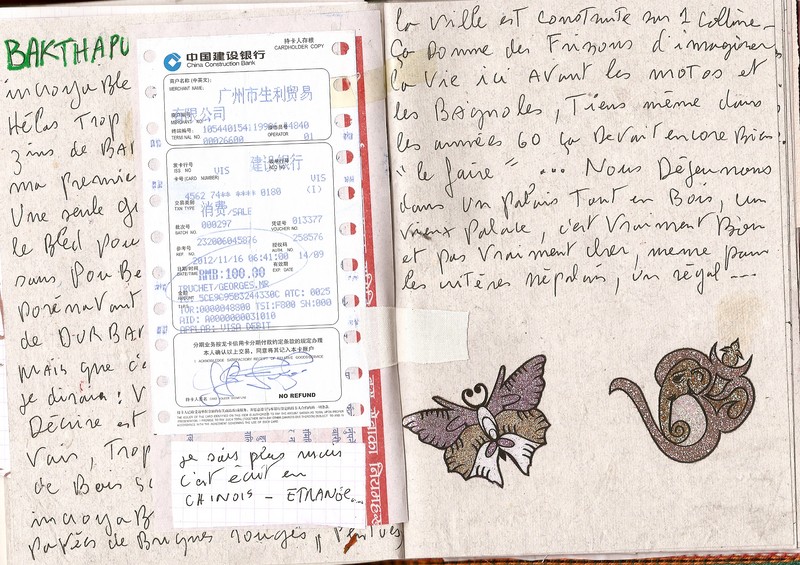 BAKTHAPU
incroyable
Hélas Trop
zins de BAK
ma premiè
Une seule gr
le Bled pou
sans Poube
dorénavant
de DURBAR
MAIS que c'e
je dirais : V
Décrire est
Vain, Trop
de Bois Sc
incroyaB
pavées de Briques rouges, Peintues
持卡人存根
CARDHOLDER COPY
中国建设银行
China Construction Bank
商户名称(中英文):
MERCHANT NAME:
广州市生利贸易
有限公司
商户编号:
MERCHANT NO.
终端编号:
TERMINAL NO.
00026600
操作员号
OPERATOR
01
发卡行号
ISS NO.
VIS
建设银行
收单行号
ACQ NO.
卡号(CARD NUMBER)
VIS
4562 74** **** 0180
(1)
交易类型
TXN TYPE
消费/SALE
批次号
BATCH NO
000297
凭证号
VOUCHER NO
013377
参考号
REF. NO
232006045876
授权码
AUTH. NO
250576
日期/时间
DATE/TIME
2012/11/16 06:41:00
有效期
EXP. DATE
14/09
AMOUNT
RMB:100.00
TRUCHET/GEORGES.MR
TC:5CE9C95B3244330C ATC: 0025
TVR:0000048800 TSI:F800 SN:000
AID: A0000000031010
APPLAB: VISA DEBIT
分期业务按龙卡信用卡分期付款约定条款的规定办理
本人确认以上交易,同意将其记入本卡账户
I ACKNOWLEDGE SATISFACTORY RECEIPT OF RELATIVE GOODS/SERVICE
持卡人签名
NO REFUND
je sais plus mais
c'est écrit en
CHINOIS - ETRANGE...
la ville est construite sur 1 colline -
ça Donne des Frissons d'imaginer
la vie ici AVant les motos et
les BAgnoles, Tiens même dans
les années 60 ça Devait encore Bien
"le faire" ... Nous Déjeunons
dans un palais Tout en Bois, un
vieux palace, c'est vraiment Bien
et pas vraiment cher, meme pour
les critères népalais, un régal ---